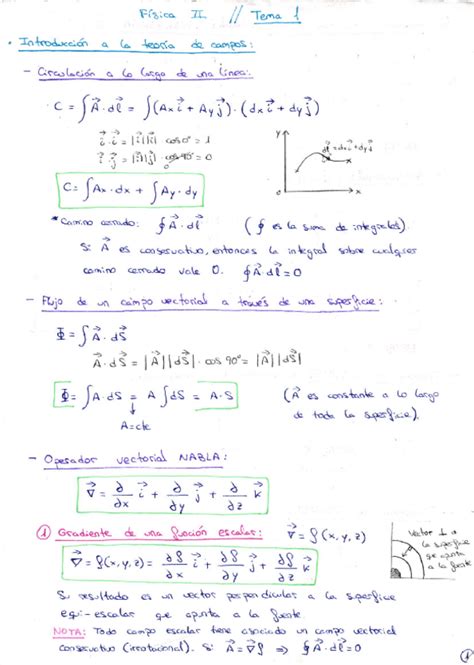 Física II // Tema 1
• Introducción a la teoría de campos:
- Circulación a lo largo de una línea:
C = ∫A⃗·dl⃗ = ∫(Ax i⃗ + Ay j⃗)·(dx i⃗ + dy j⃗)
i⃗·i⃗ = |i⃗||i⃗| cos 0° = 1
i⃗·j⃗ = |i⃗||j⃗| cos 90° = 0
y
dl⃗ = dx i⃗ + dy j⃗
0 x
C = ∫Ax·dx + ∫Ay·dy
*Camino cerrado: ∮A⃗·dl⃗ (∮ es la suma de integrales).
Si A⃗ es conservativo, entonces la integral sobre cualquier
camino cerrado vale 0. ∮A⃗·dl⃗ = 0
- Flujo de un campo vectorial a través de una superficie:
Φ = ∫A⃗·dS⃗
A⃗·dS⃗ = |A⃗||dS⃗|·cos 90° = |A⃗||dS⃗|
Φ = ∫A·dS = A∫dS = A·S (A⃗ es constante a lo largo
de toda la superficie).
A=cte
- Operador vectorial NABLA:
∇⃗ = ∂/∂x i⃗ + ∂/∂y j⃗ + ∂/∂z k⃗
① Gradiente de una función escalar: ∇⃗ = f(x,y,z)
∇⃗ = f(x,y,z) = ∂f/∂x i⃗ + ∂f/∂y j⃗ + ∂f/∂z k⃗
Vector ⊥ a
la superficie
que apunta
a la fuente
Su resultado es un vector perpendicular a la superficie
equi-escalar que apunta a la fuente.
NOTA: Todo campo escalar tiene asociado un campo vectorial
conservativo (irrotacional). Si A⃗ = ∇⃗f ⇒ ∮A⃗·dl⃗ = 0
①